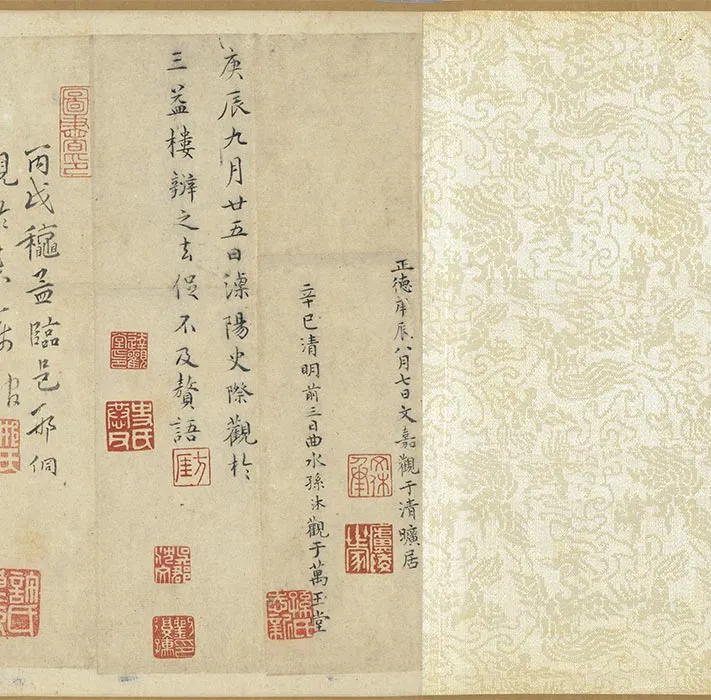 正德庚辰八月七日文嘉觀于清曠居
辛巳清明前三日曲水孫沐觀于萬玉堂
庚辰九月廿五日溧陽史際觀於
三益樓辨之去促不及贅語
丙戌龝孟臨邑邢侗